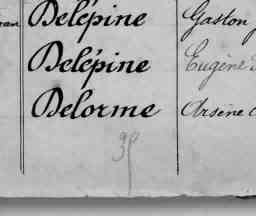 Delépine Gaston
Delépine Eugène
Delorme Arsène